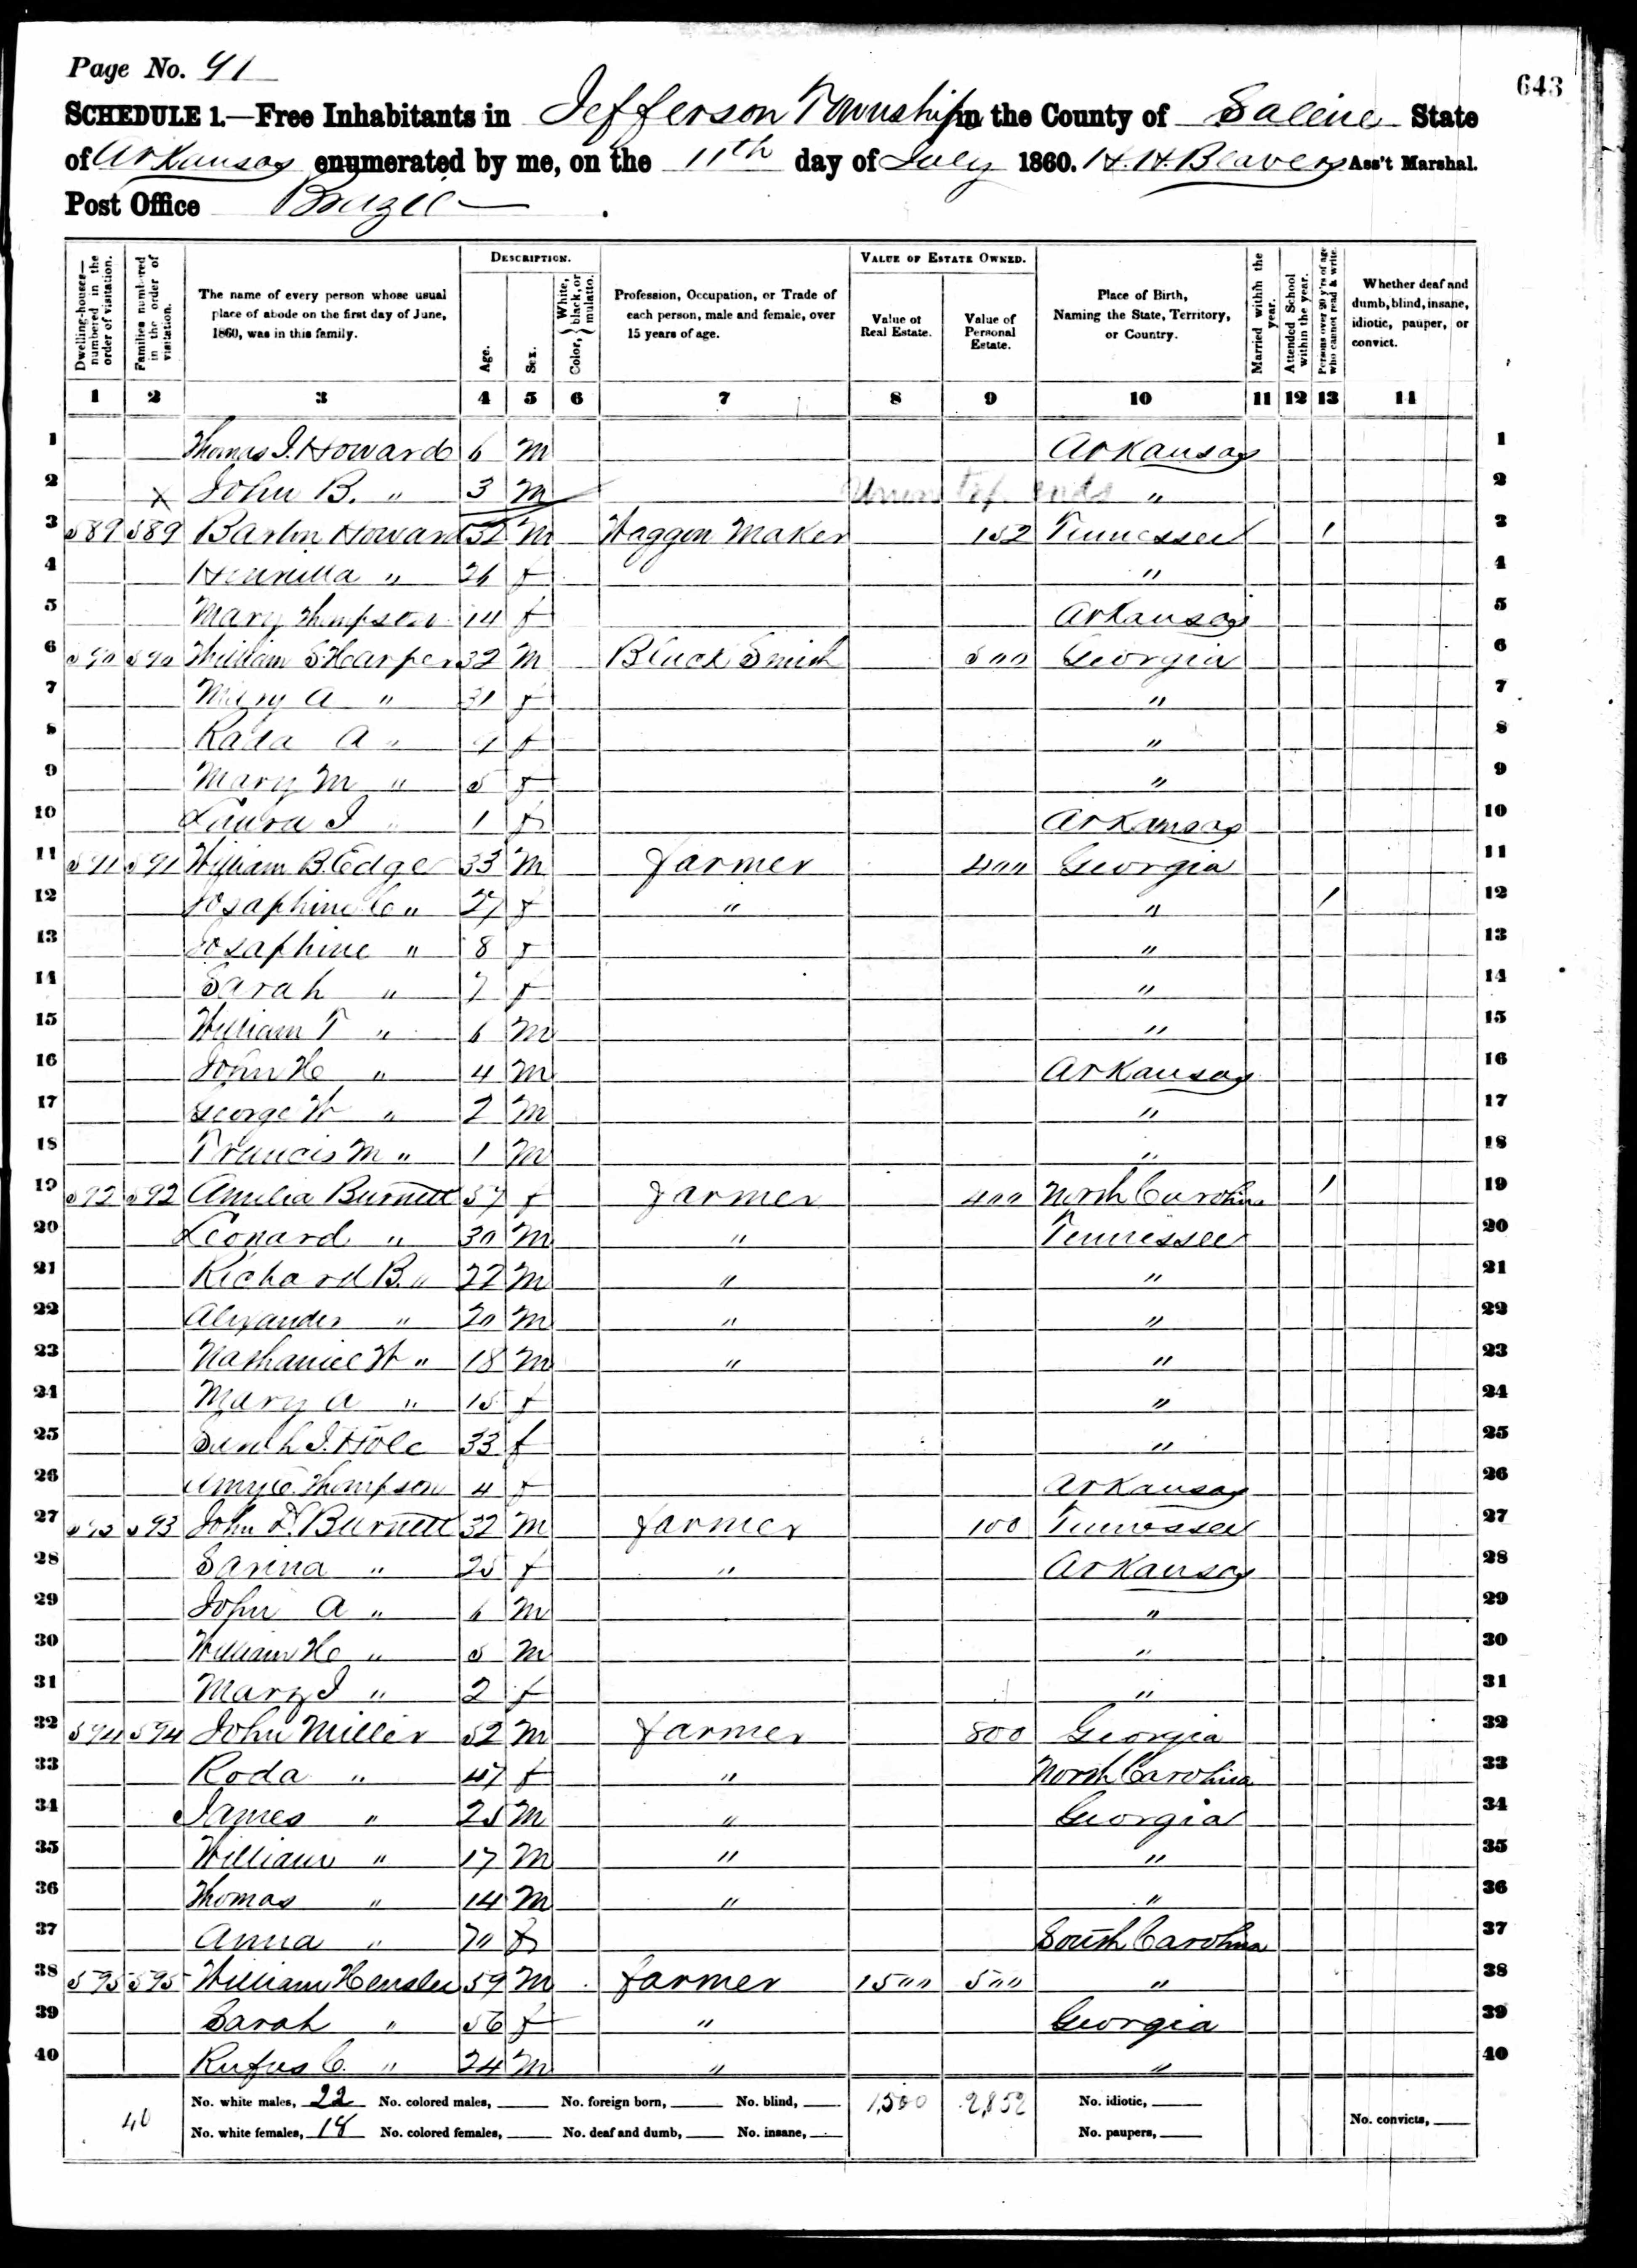 Page No. 91
643
SCHEDULE 1.—Free Inhabitants in Jefferson Township in the County of Saline State
of Arkansas enumerated by me, on the 11th day of July 1860. H. H. Beavers Ass't Marshal.
Post Office Brazil
Dwelling-houses—numbered in the order of visitation.
Families numbered in the order of visitation.
The name of every person whose usual place of abode on the first day of June, 1860, was in this family.
DESCRIPTION.
Age.
Sex.
Color, } White, black, or mulatto.
Profession, Occupation, or Trade of each person, male and female, over 15 years of age.
VALUE OF ESTATE OWNED.
Value of Real Estate.
Value of Personal Estate.
Place of Birth, Naming the State, Territory, or Country.
Married within the year.
Attended School within the year.
Persons over 20 y'rs of age who cannot read & write.
Whether deaf and dumb, blind, insane, idiotic, pauper, or convict.
1 2 3 4 5 6 7 8 9 10 11 12 13 14
1 Thomas J. Howard 6 m Arkansas 1
2 X John B. " 3 m " 2
3 589 589 Howard 52 m Waggon Maker 152 Tennessee / 3
4 " 26 f " 4
5 Mary 14 f Arkansas 5
6 590 590 William S Harper 32 m Black Smith 500 Georgia 6
7 Mary A " 31 f " 7
8 A " 9 f " 8
9 Mary M " 5 f " 9
10 Laura J " 1 f Arkansas 10
11 591 591 William B. Edge 33 m farmer 400 Georgia 11
12 Josaphine C " 27 f " " / 12
13 Josaphine " 8 f " 13
14 Sarah " 7 f " 14
15 William T " 6 m " 15
16 John H " 4 m Arkansas 16
17 George W " 2 m " 17
18 Francis M " 1 m " 18
19 592 592 Amelia Burnett 57 f farmer 400 North Carolina / 19
20 Leonard " 30 m " Tennessee 20
21 Richard B. " 22 m " " 21
22 Alexander " 20 m " " 22
23 Nathaniel W " 18 m " " 23
24 Mary A " 15 f " 24
25 Sarah J. Hole 33 f " 25
26 Amy C. Thompson 4 f Arkansas 26
27 593 593 John Burnett 32 m farmer 100 Tennessee 27
28 Sarina " 25 f " Arkansas 28
29 John A " 6 m " 29
30 William H " 5 m " 30
31 Mary J " 2 f " 31
32 594 594 John Miller 52 m farmer 800 Georgia 32
33 Roda " 47 f " North Carolina 33
34 James " 25 m " Georgia 34
35 William " 17 m " " 35
36 Thomas " 14 m " " 36
37 Anna " 70 f South Carolina 37
38 595 595 William Henslee 59 m farmer 1500 500 " 38
39 Sarah " 56 f " Georgia 39
40 Rufus C. " 24 m " " 40
40 No. white males, 22 No. colored males, No. foreign born, No. blind, 1,500 2,852 No. idiotic,
No. white females, 18 No. colored females, No. deaf and dumb, No. insane, No. paupers, No. convicts,